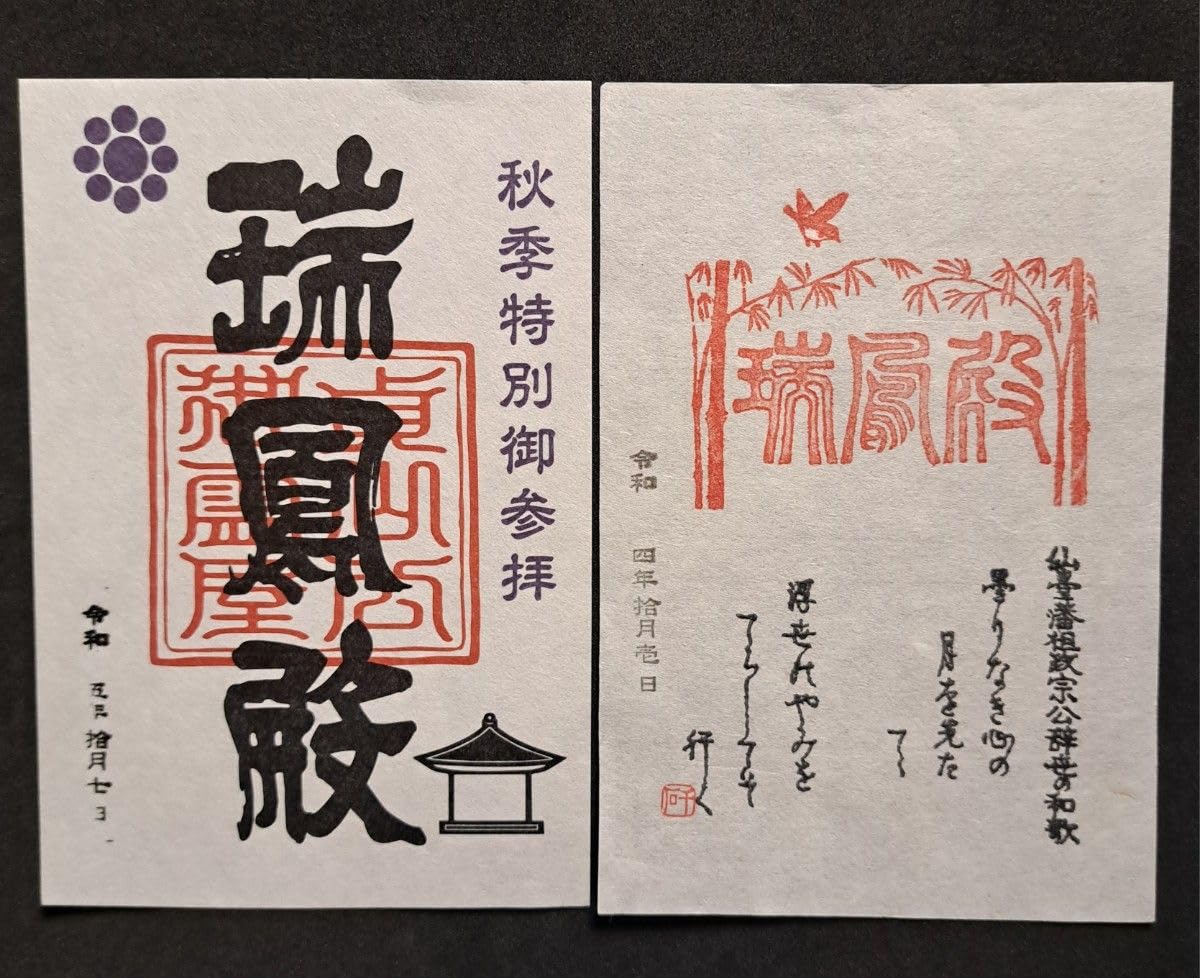 秋季特別御参拝
瑞鳳殿
貞山公
御霊屋
令和 五年 拾月七日
瑞鳳殿
仙臺藩祖政宗公辞世の和歌
曇りなき心の
月を先た
てゝ
浮世のやみを
てらしてそ
行く
令和 四年拾月壱日